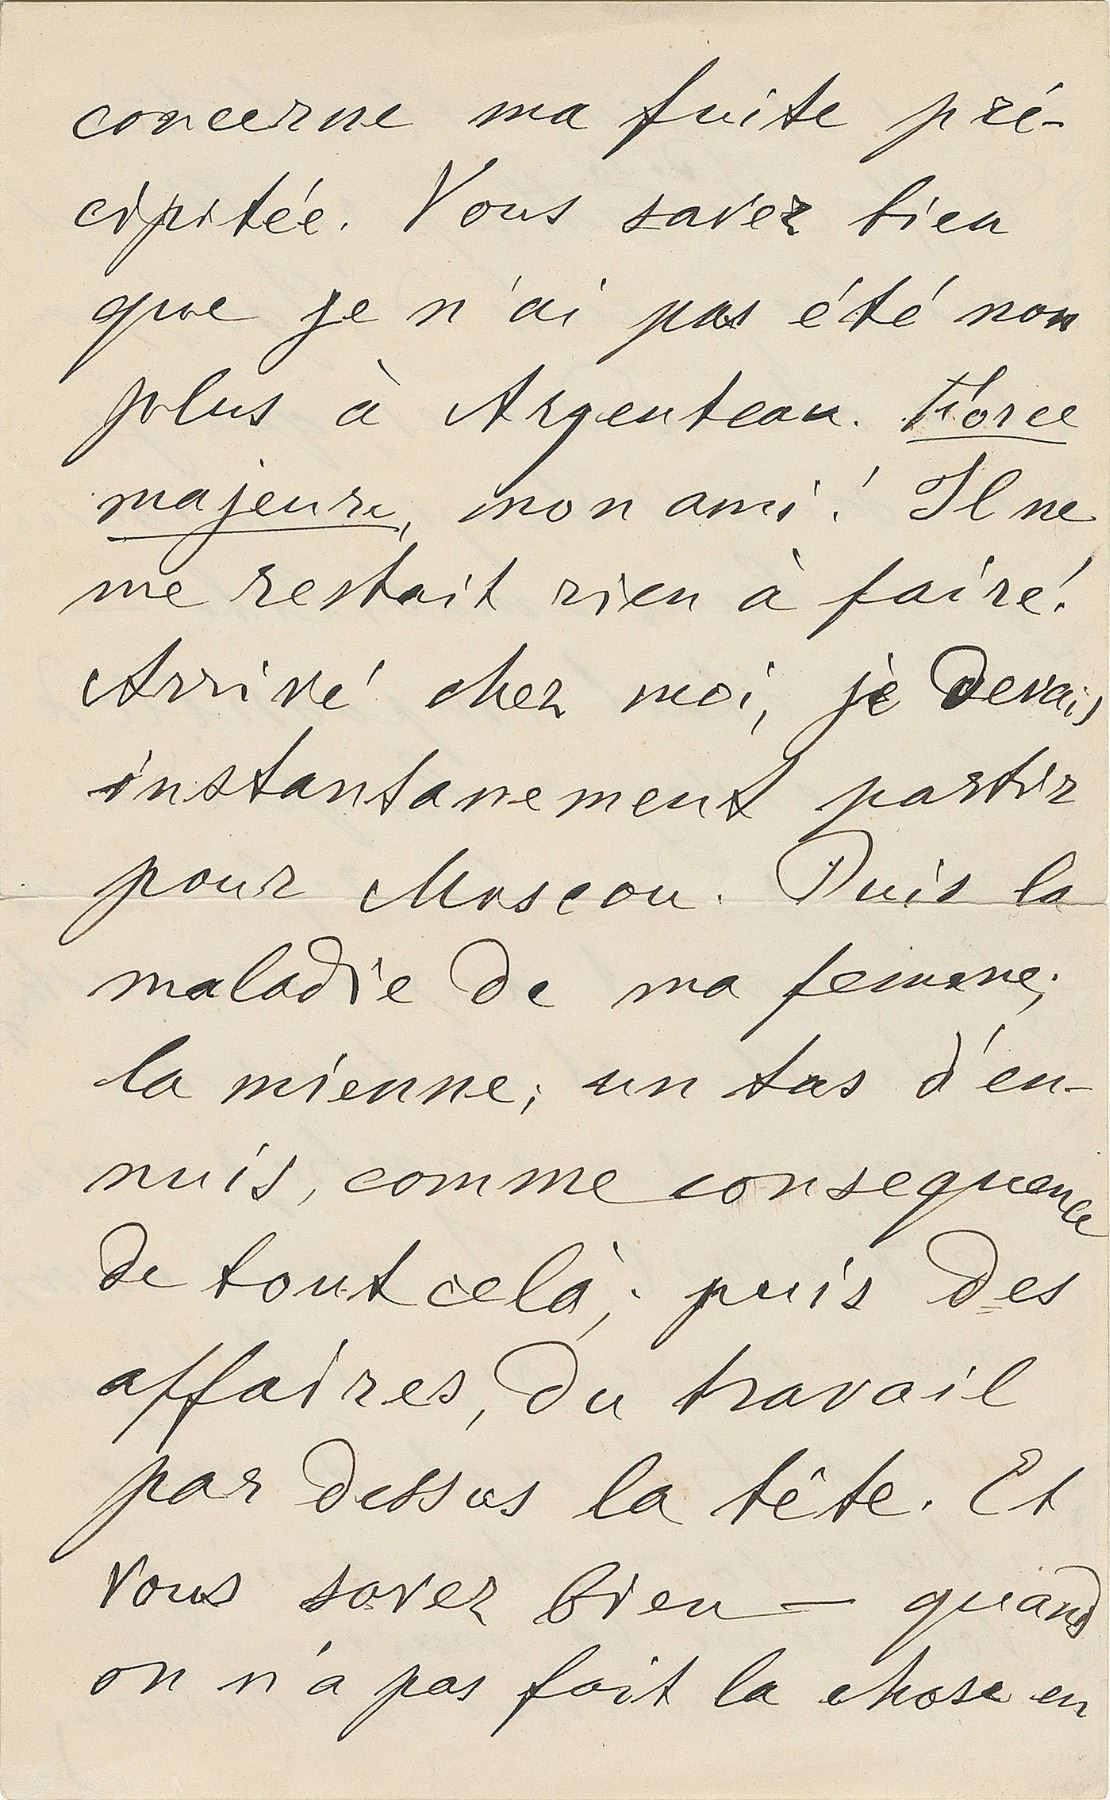 concerne ma fuite pré-
cipitée. Vous savez bien
que je n'ai pas été non
plus à Argenteau. Force
majeure, mon ami! Il ne
me restait rien à faire!
Arrivé chez moi, je devais
instantanement partir
pour Moscou. Puis la
maladie de ma femme;
la mienne; un tas d'en-
nuis, comme consequence
de tout celà; puis des
affaires, du travail
par dessus la tête. Et
vous savez bien — quand
on n'a pas fait la chose en